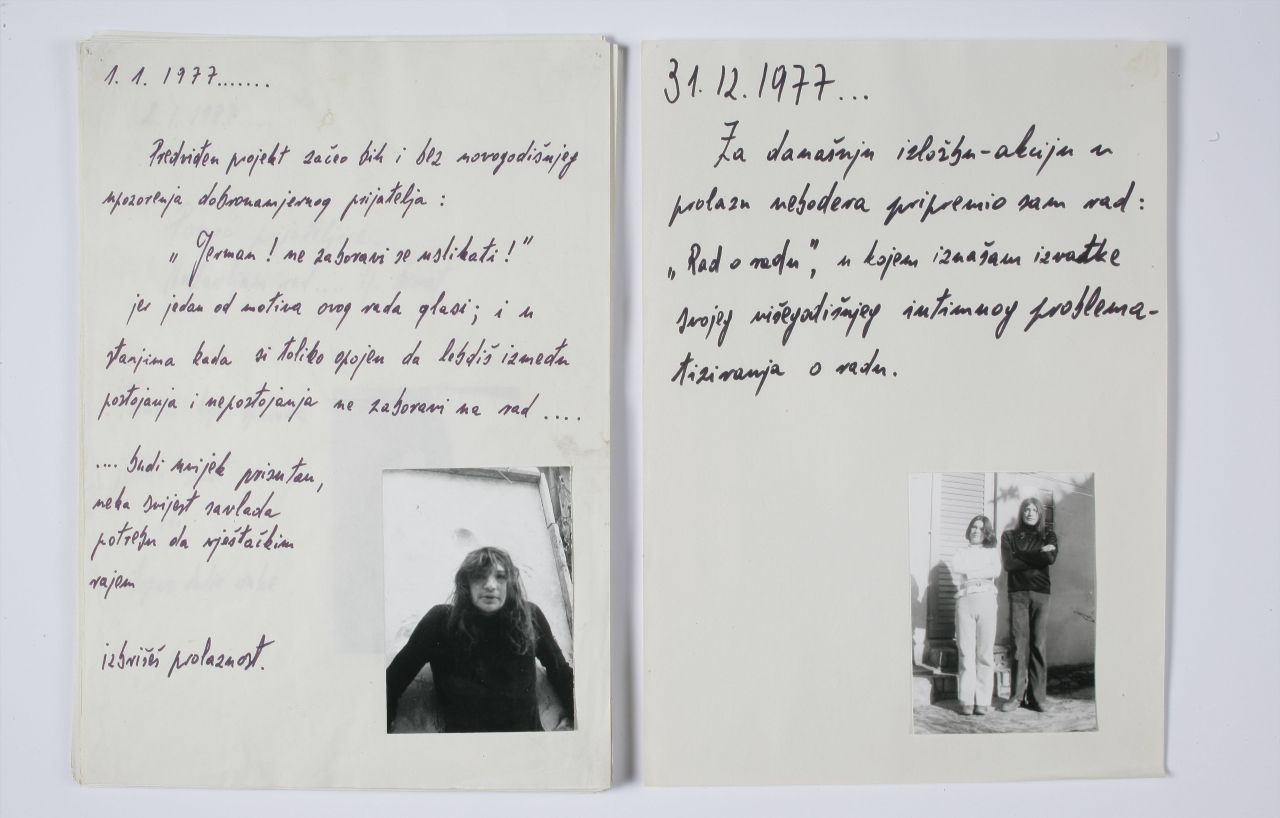 1. 1. 1977.......
Predviđen projekt začeo bih i bez novogodišnjeg
upozorenja dobronamjernog prijatelja :
„ Jerman ! ne zaboravi se uslikati ! "
jer jedan od motiva ovog rada glasi ; i u
stanjima kada si toliko opojen da lebdiš između
postojanja i nepostojanja ne zaboravi na rad ....
.... budi uvijek prisutan,
neka svijest savlada
potrebu da vještačkim
rajem
izbrišeš prolaznost.
31. 12. 1977...
Za današnju izložbu-akciju u
prolazu nebodera pripremio sam rad :
„Rad o radu", u kojem iznašam izvatke
svojeg višegodišnjeg intimnog problema-
tiziranja o radu.